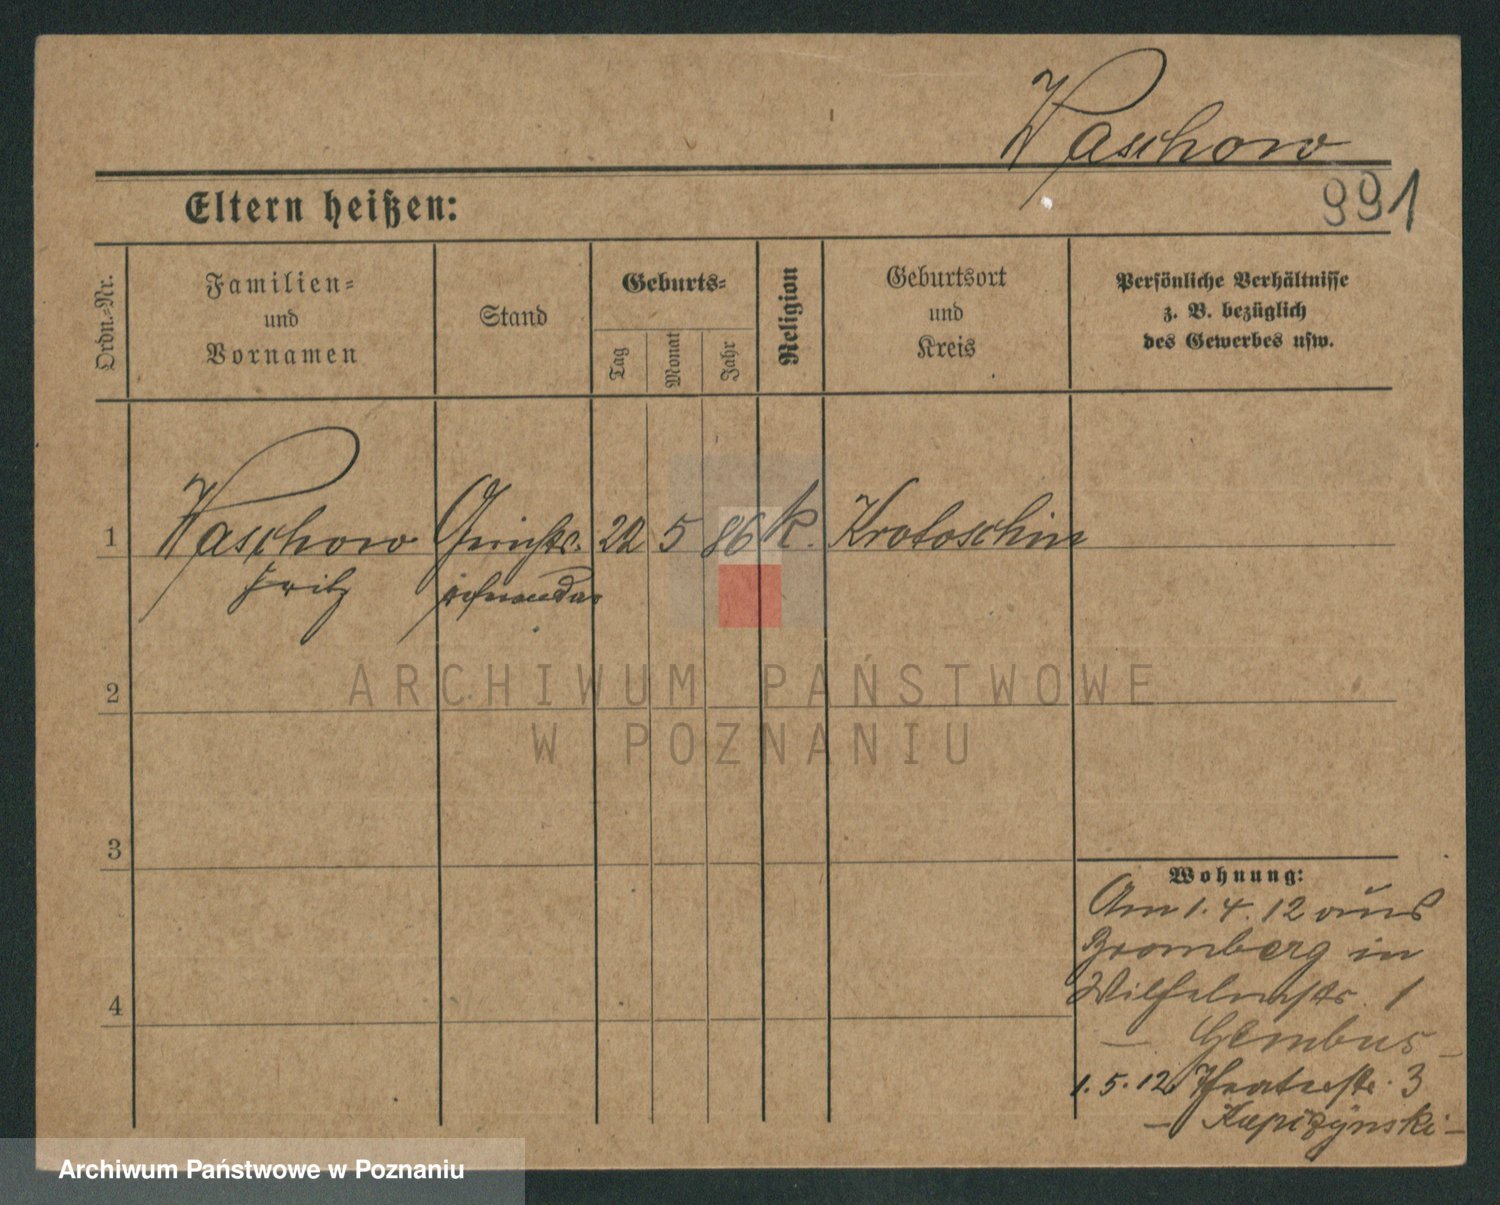 Waschow
991
Eltern heißen:
Ordn.-Nr.
Familien-
und
Vornamen
Stand
Geburts-
Tag
Monat
Jahr
Religion
Geburtsort
und
Kreis
Persönliche Verhältnisse
z. B. bezüglich
des Gewerbes usw.
1 Waschow Gerichts- 22 5 86 k. Krotoschin
Fritz referendar
2
3
4
Wohnung:
Am 1. 4. 12 aus
Bromberg in
Wilhelmstr. 1
— Gembus —
1. 5. 12 Theaterstr. 3
ARCHIWUM PAŃSTWOWE
W POZNANIU
Archiwum Państwowe w Poznaniu